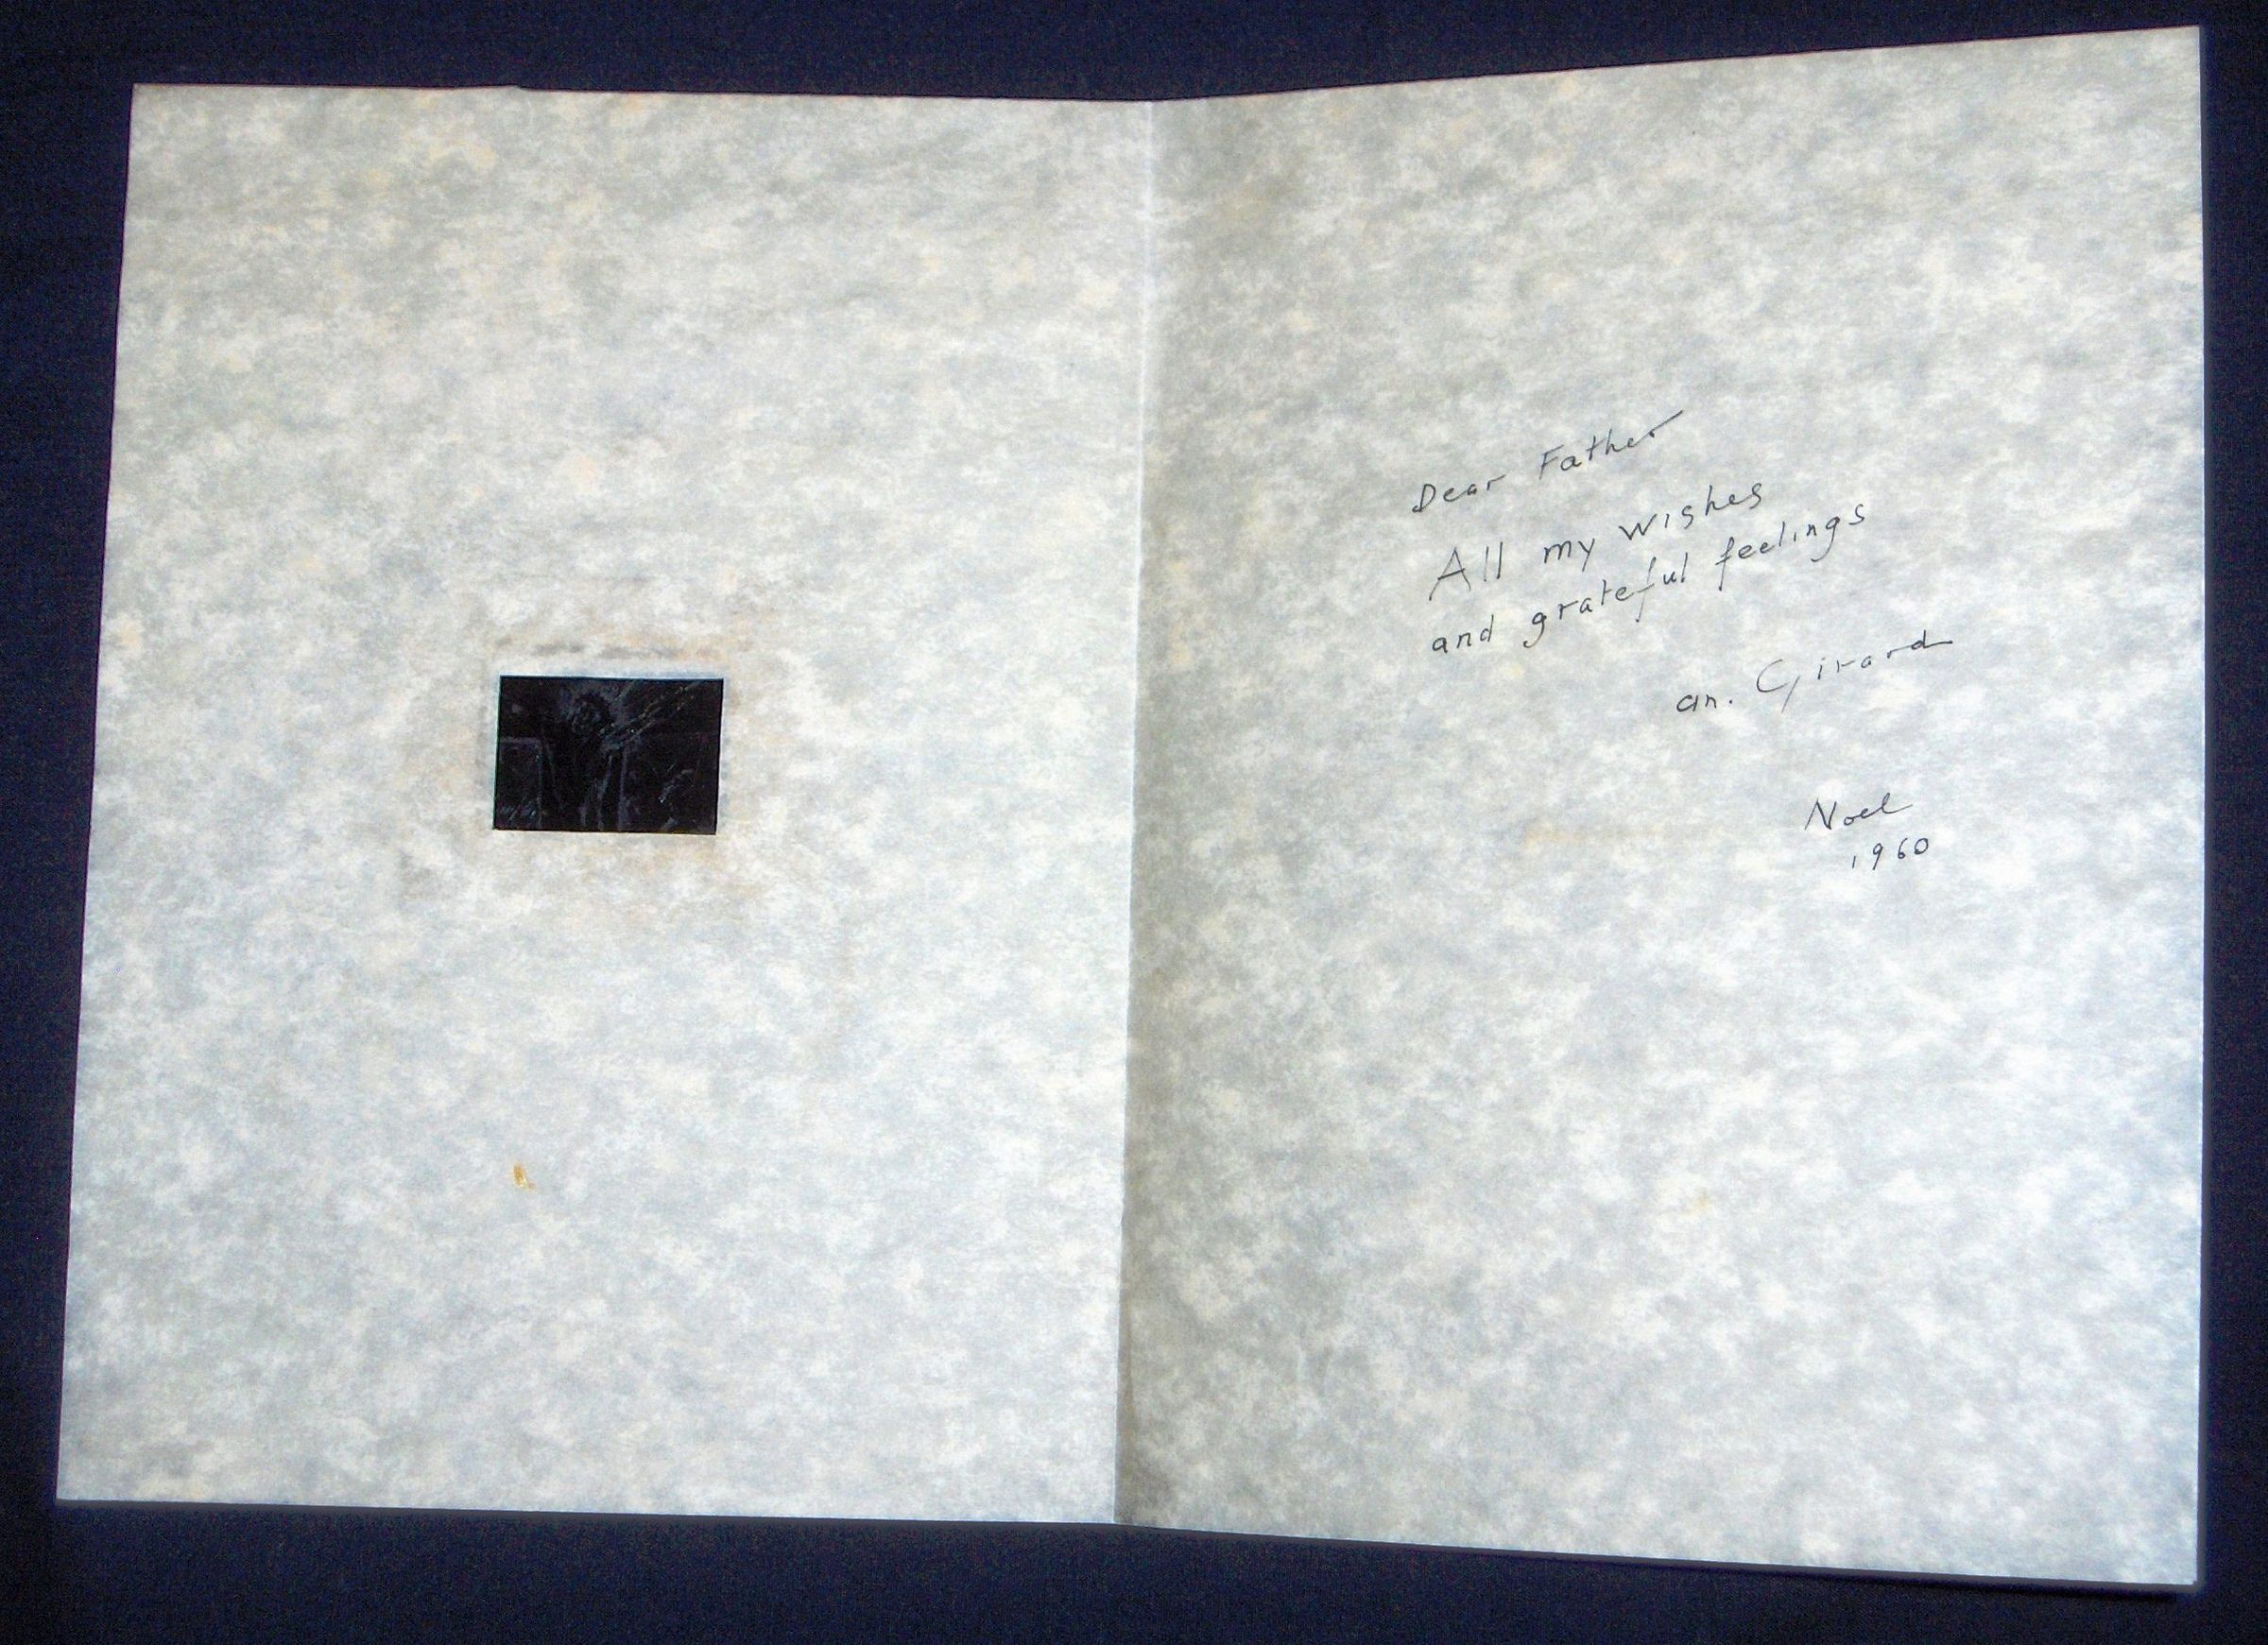 Dear Father
All my wishes
and grateful feelings
an. Girard
Noel
1960